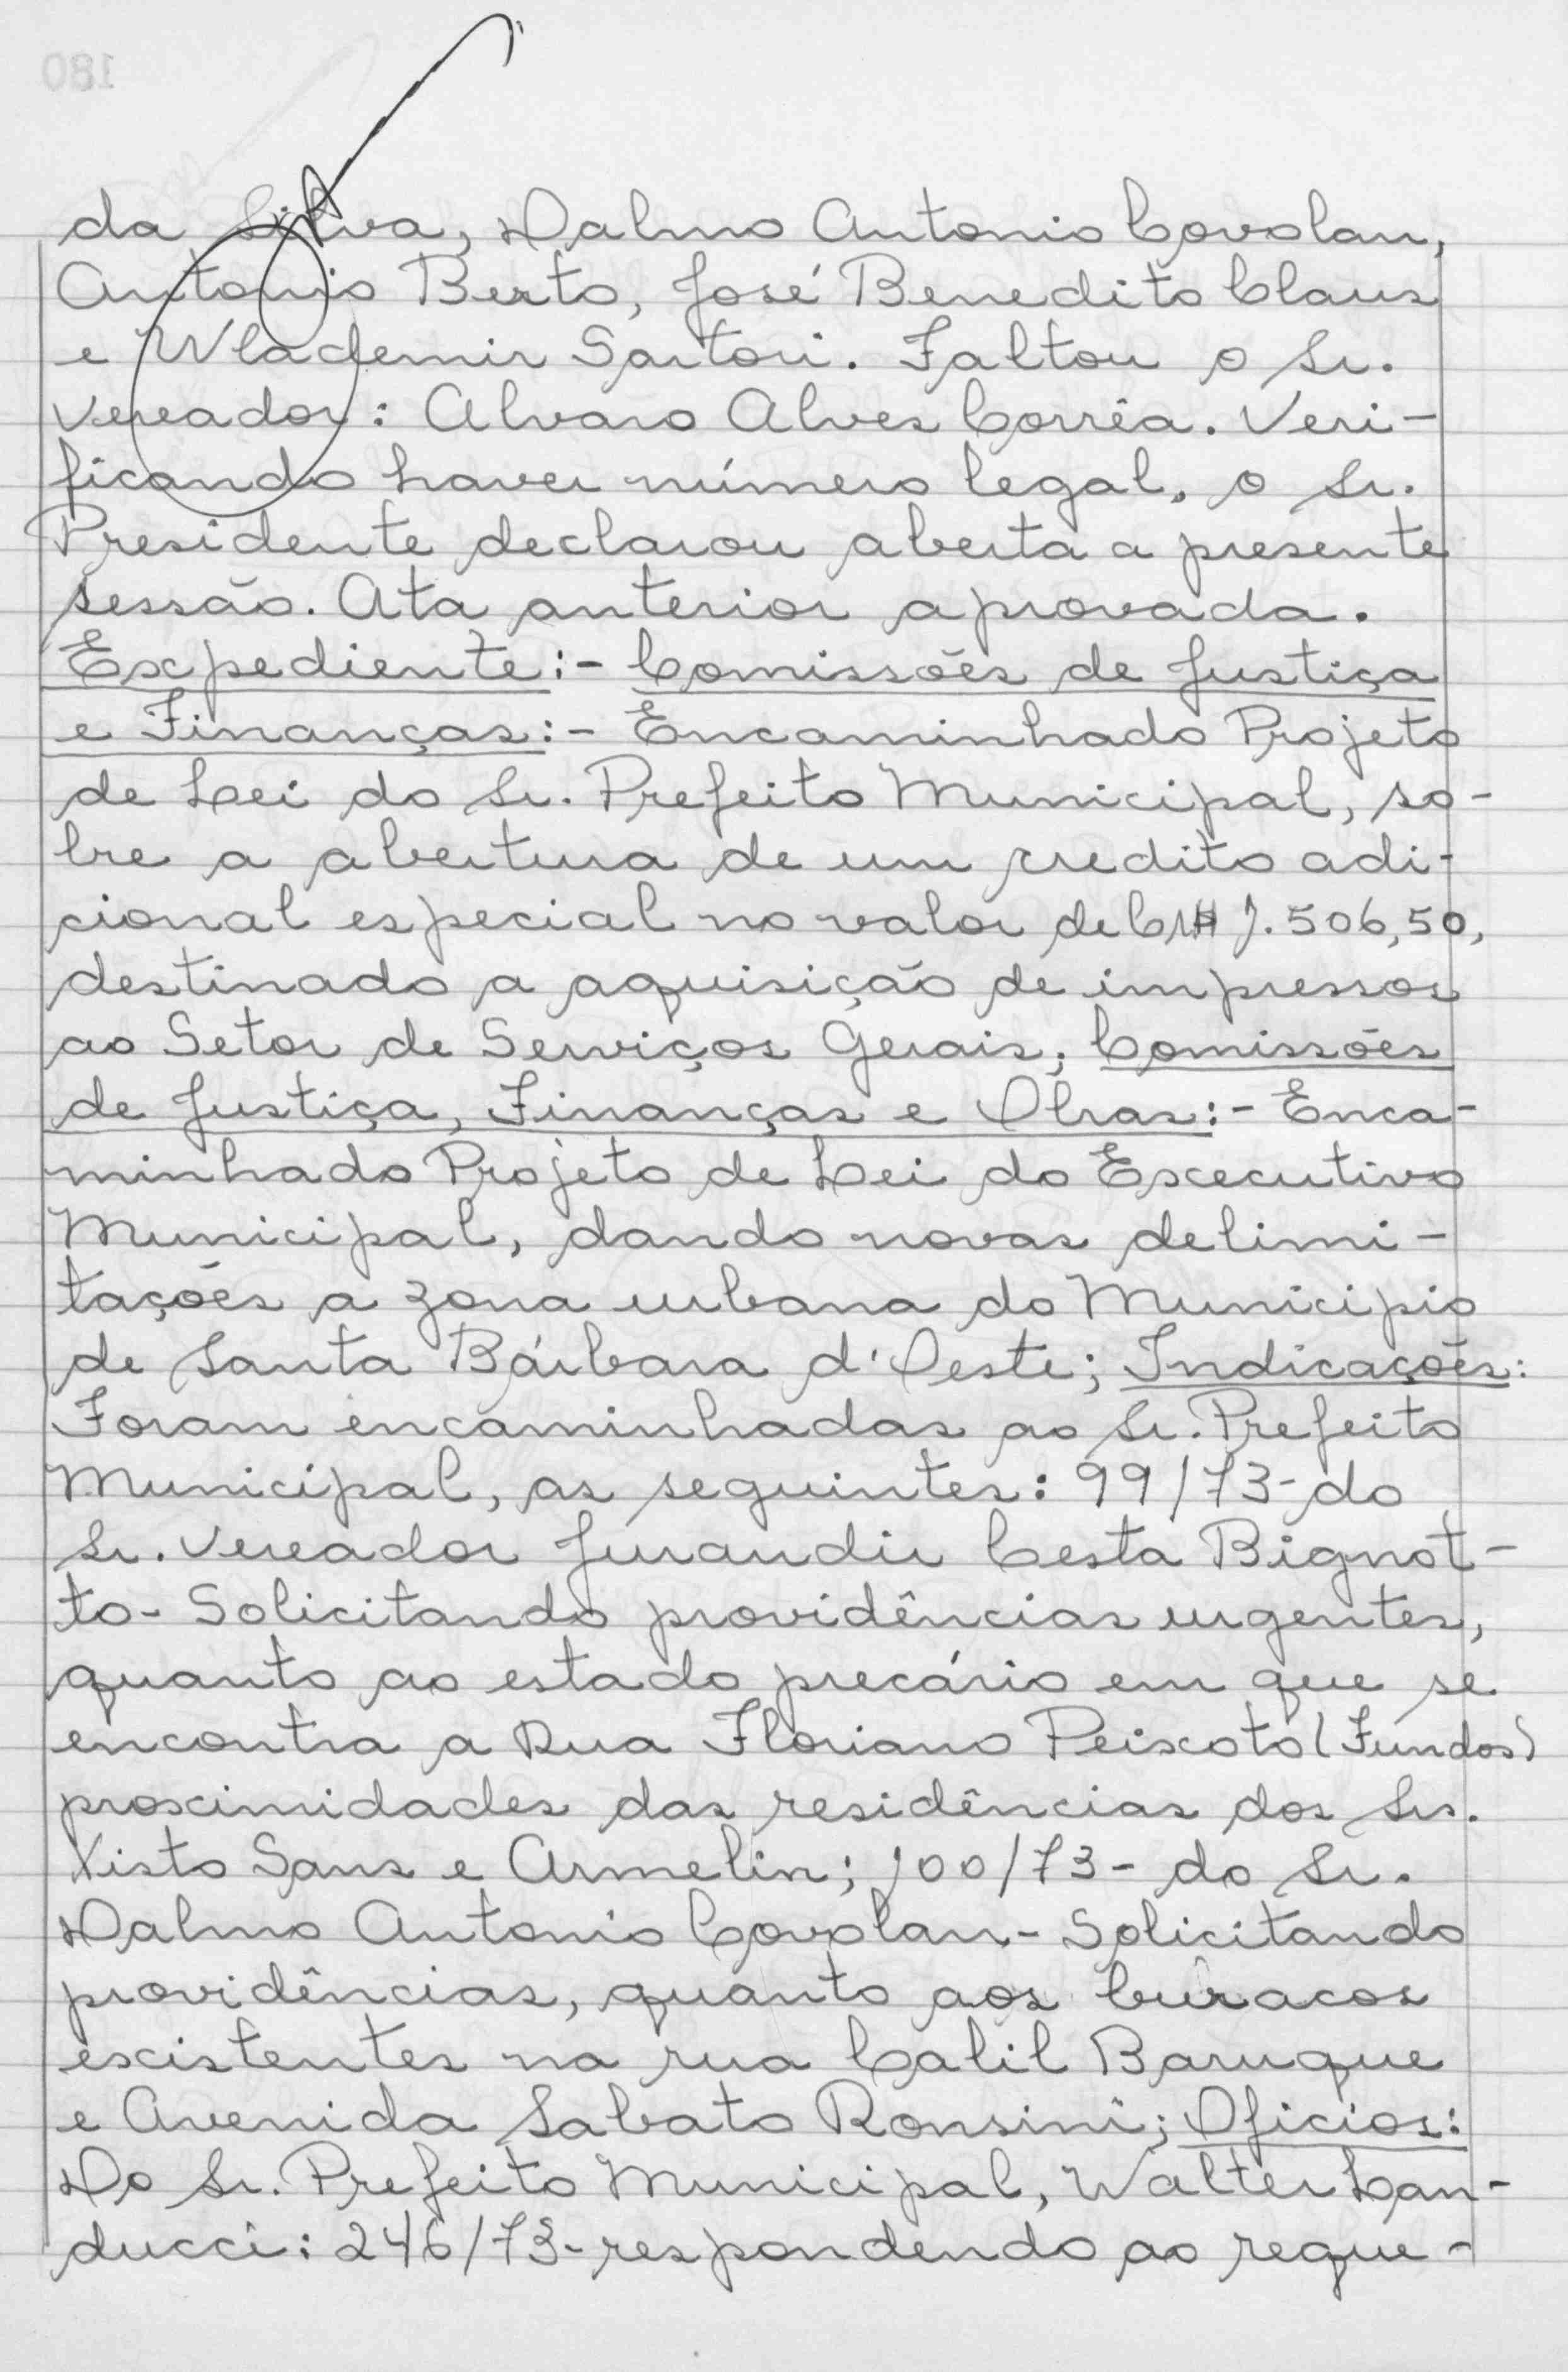 da Silva, Dalmo Antonio Covolan,
Antonio Berto, José Benedito Claus
e Wlademir Sartori. Faltou o Sr.
Vereador: Alvaro Alves Corrêa. Veri-
ficando haver número legal, o Sr.
Presidente declarou aberta a presente
sessão. Ata anterior aprovada.
Expediente:- Comissões de Justiça
e Finanças:- Encaminhado Projeto
de Lei do Sr. Prefeito Municipal, so-
bre a abertura de um credito adi-
cional especial no valor de Cr$ 1.506,50,
destinado a aquisição de impressos
ao Setor de Serviços Gerais; Comissões
de Justiça, Finanças e Obras:- Enca-
minhado Projeto de Lei do Executivo
Municipal, dando novas delimi-
tações a zona urbana do Municipio
de Santa Bárbara d'Oeste; Indicações:
Foram encaminhadas ao Sr. Prefeito
Municipal, as seguintes: 99/73- do
Sr. Vereador Jurandir Cesta Bignot-
to- Solicitando providências urgentes,
quanto ao estado precário em que se
encontra a Rua Floriano Peixoto (Fundos)
proximidades das residências dos Srs.
Xisto Sans e Armelin; 100/73- do Sr.
Dalmo Antonio Covolan- Solicitando
providências, quanto aos buracos
existentes na rua Calil Baruque
e Avenida Sabato Ronsini; Oficios:
Do Sr. Prefeito Municipal, Walter Lan-
ducci: 246/73- respondendo ao reque-
180